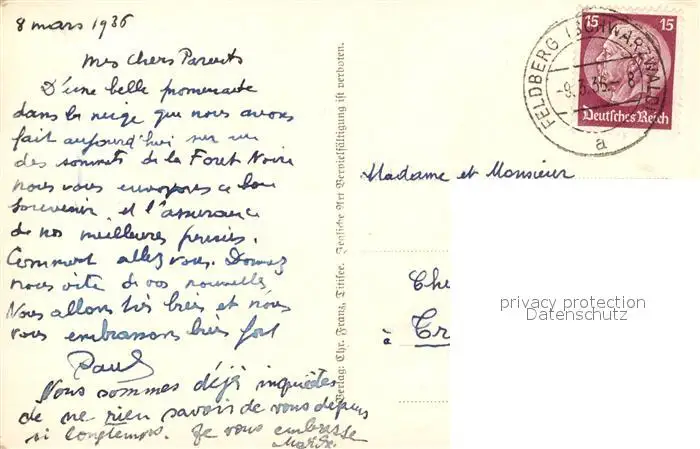 8 mars 1936
Mes chers Parents
D'une belle promenade
dans la neige que nous avons
fait aujourd'hui sur un
des sommets de la Foret Noire
nous vous envoyons ce bon
souvenir et l'assurance
de nos meilleures pensées.
Comment allez vous. Donnez
nous vite de vos nouvelles
Nous allons très bien et nous
vous embrassons bien fort
Paul
Nous sommes déjà inquiètes
de ne rien savoir de vous depuis
si longtemps. Je vous embrasse
Verlag: Chr. Franz, Titisee. Jegliche Art Vervielfältigung ist verboten.
FELDBERG (SCHWARZWALD)
-9.3.36-8
a
15 15
Deutsches Reich
Madame et Monsieur
Che
à Tr
privacy protection
Datenschutz